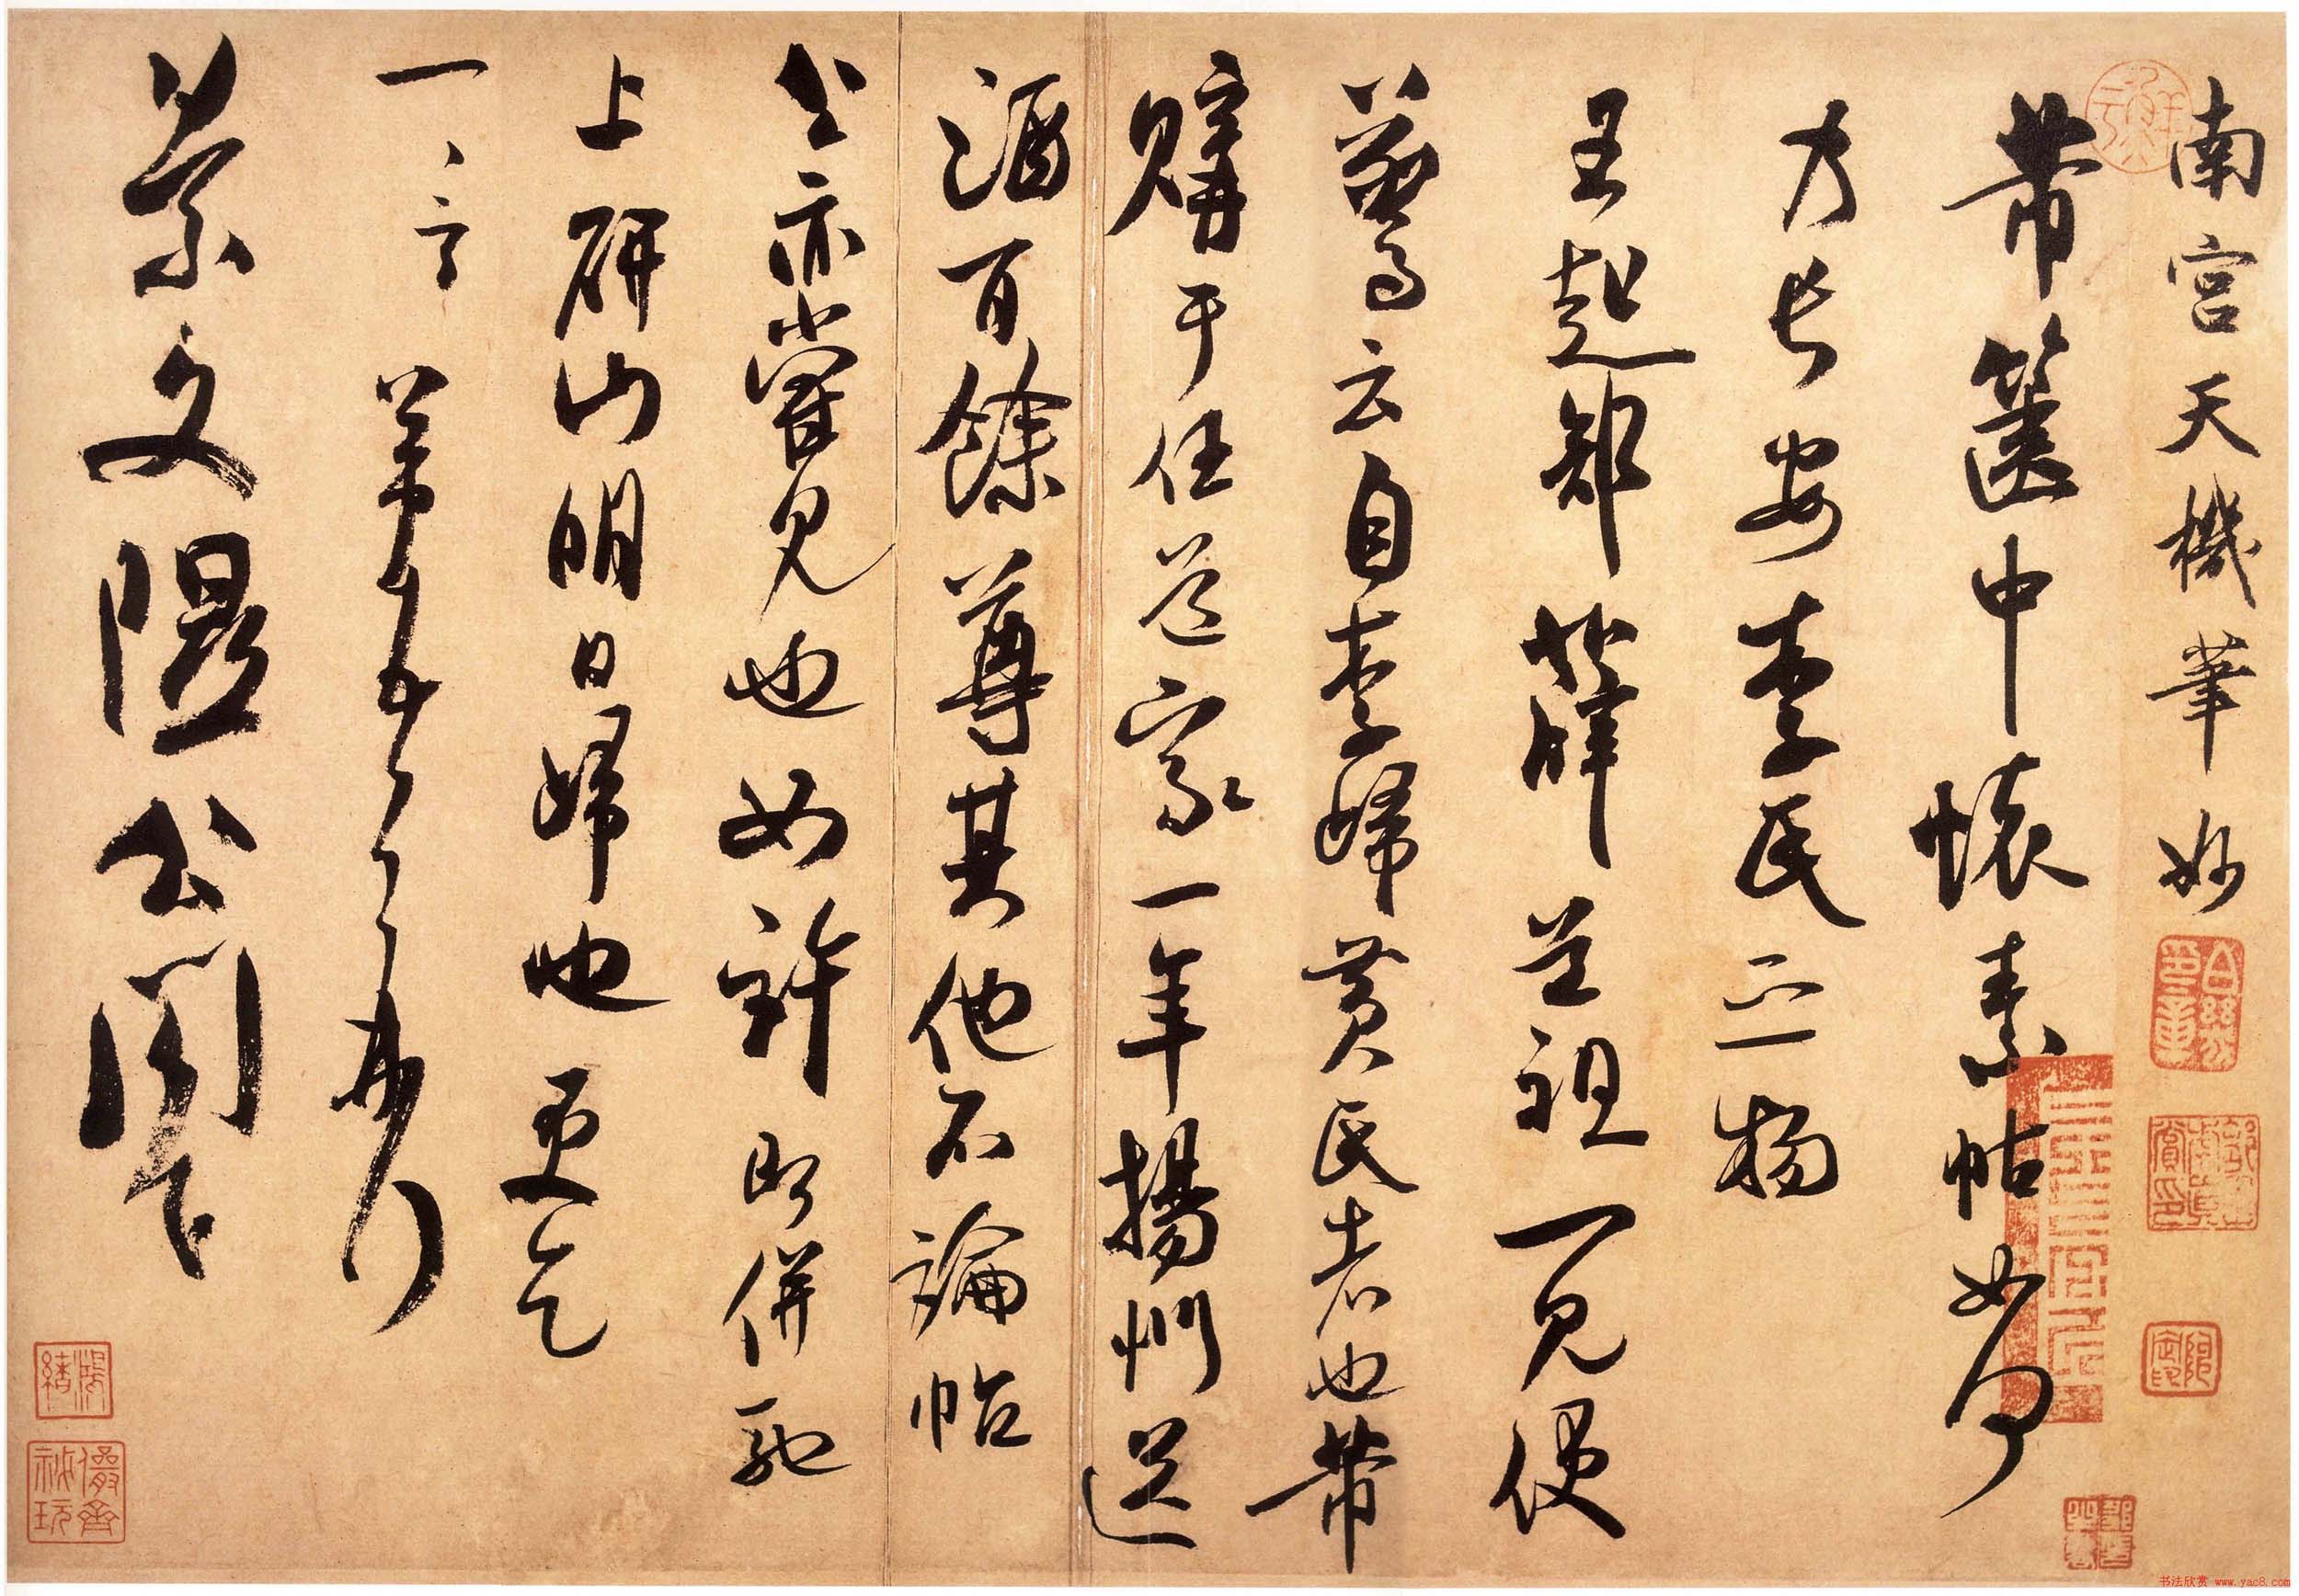 南宮天機筆妙
芾篋中懷素帖如何
乃長安李氏之物
王起部薛道祖一見便
驚云自李歸黃氏者也芾
購于任道家一年揚州送
酒百餘尊其他不論帖
公亦嘗見也如許即併馳
上研山明日歸也更乞
一言芾頓首再拜
景文隰公閣下
儼齋秘玩
书法欣赏 www.yac8.com